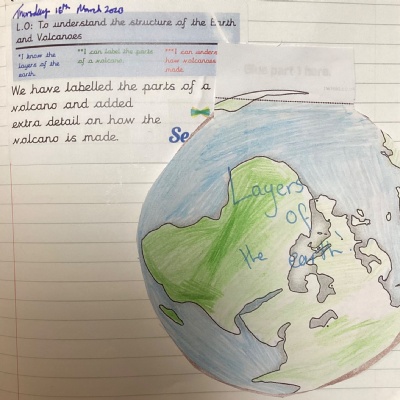 Thursday 18th March 2020
L.O: To understand the structure of the Earth
and Volcanoes
*I know the
layers of the
earth.
**I can label the parts
of a volcano.
***I can unders
how volcanoes
made.
Glue part 1 here
We have labelled the parts of a
volcano and added
extra detail on how the
volcano is made.
Se
Layers
of
the earth!